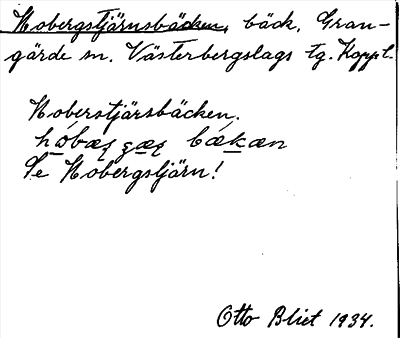 Hobergstjärnsbäcken, bäck, Gran-
gärde sn. Västerbergslags tg. Koppl.
Hoberstjärsbäcken.
bäkæn
Se Hobergstjärn!
Otto Bliet 1934.